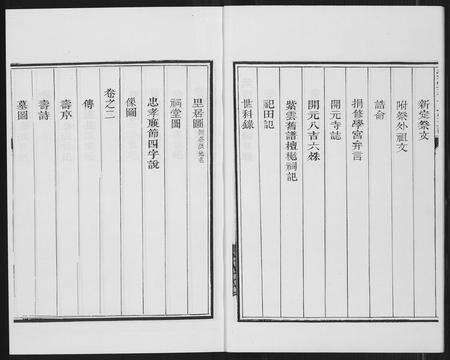 新定祭文
附祭外祖文
誥命
捐修學宮弁言
開元寺誌
開元八吉六殊
紫雲舊譜檀樾祠記
祀田記
世科錄
里居圖
祠堂圖
忠孝廉節四字說
像圖
卷之二
傳
壽序
壽詩
墓圖